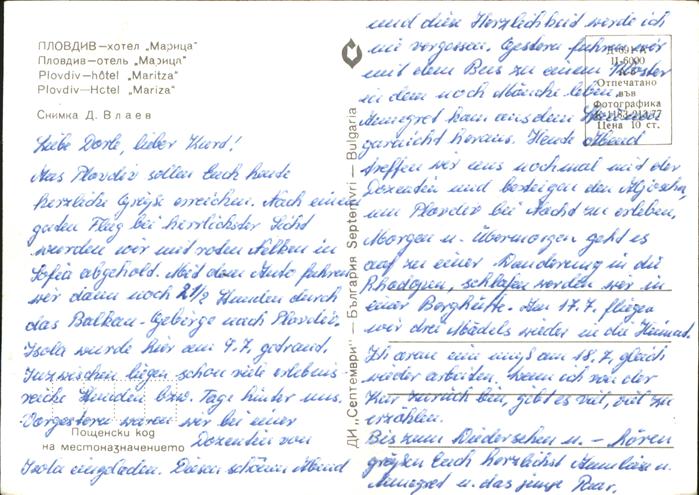 ПЛОВДИВ—хотел „Марица“
Пловдив—отель „Марица“
Plovdiv—hôtel „Maritza“
Plovdiv—Hotel „Mariza“
Снимка Д. Влаев
Liebe Dorle, lieber Kurd!
Aus Plovdiv sollen Euch heute
herzliche Grüße erreichen. Nach einem
guten Flug bei herrlichster Sicht
wurden wir mit roten Nelken in
Sofia abgeholt. Mit dem Auto fuhren
wir dann noch 2 1/2 Stunden durch
das Balkan-Gebirge nach Plovdiv.
Isola wurde hier am 9.7. getraut.
Inzwischen liegen schon viele erlebnis
reiche Stunden bzw. Tage hinter uns.
Vorgestern waren wir bei einer
Dozentin von
Isola eingeladen. Diesen schönen Abend
Пощенски код
на местоназначението
ДИ „Септември“ — България Septemvri — Bulgaria
und diese Herzlichkeit werde ich
nie vergessen. Gestern fuhren wir
mit dem Bus zu einem Kloster
in dem noch Mönche leben.
Annegret kam aus dem
garnicht heraus. Heute Abend
treffen wir uns nochmal mit der
Dozentin und besteigen den
um Plovdiv bei Nacht zu erleben.
Morgen u. Übermorgen geht es
auf zu einer Wanderung in die
Rhodopen, schlafen werden wir in
einer Berghütte. Am 17.7. fliegen
wir drei Mädels wieder in die Heimat.
Ich muß am 18.7. gleich
wieder arbeiten. Wenn ich von der
Kur zurück bin, gibt es viel, viel zu
erzählen.
Bis zum Wiedersehen u. – hören
grüßen Euch herzlichst
Annegret u. das junge Paar.
II-6000
Отпечатано
във
Фотографика
Цена 10 ст.